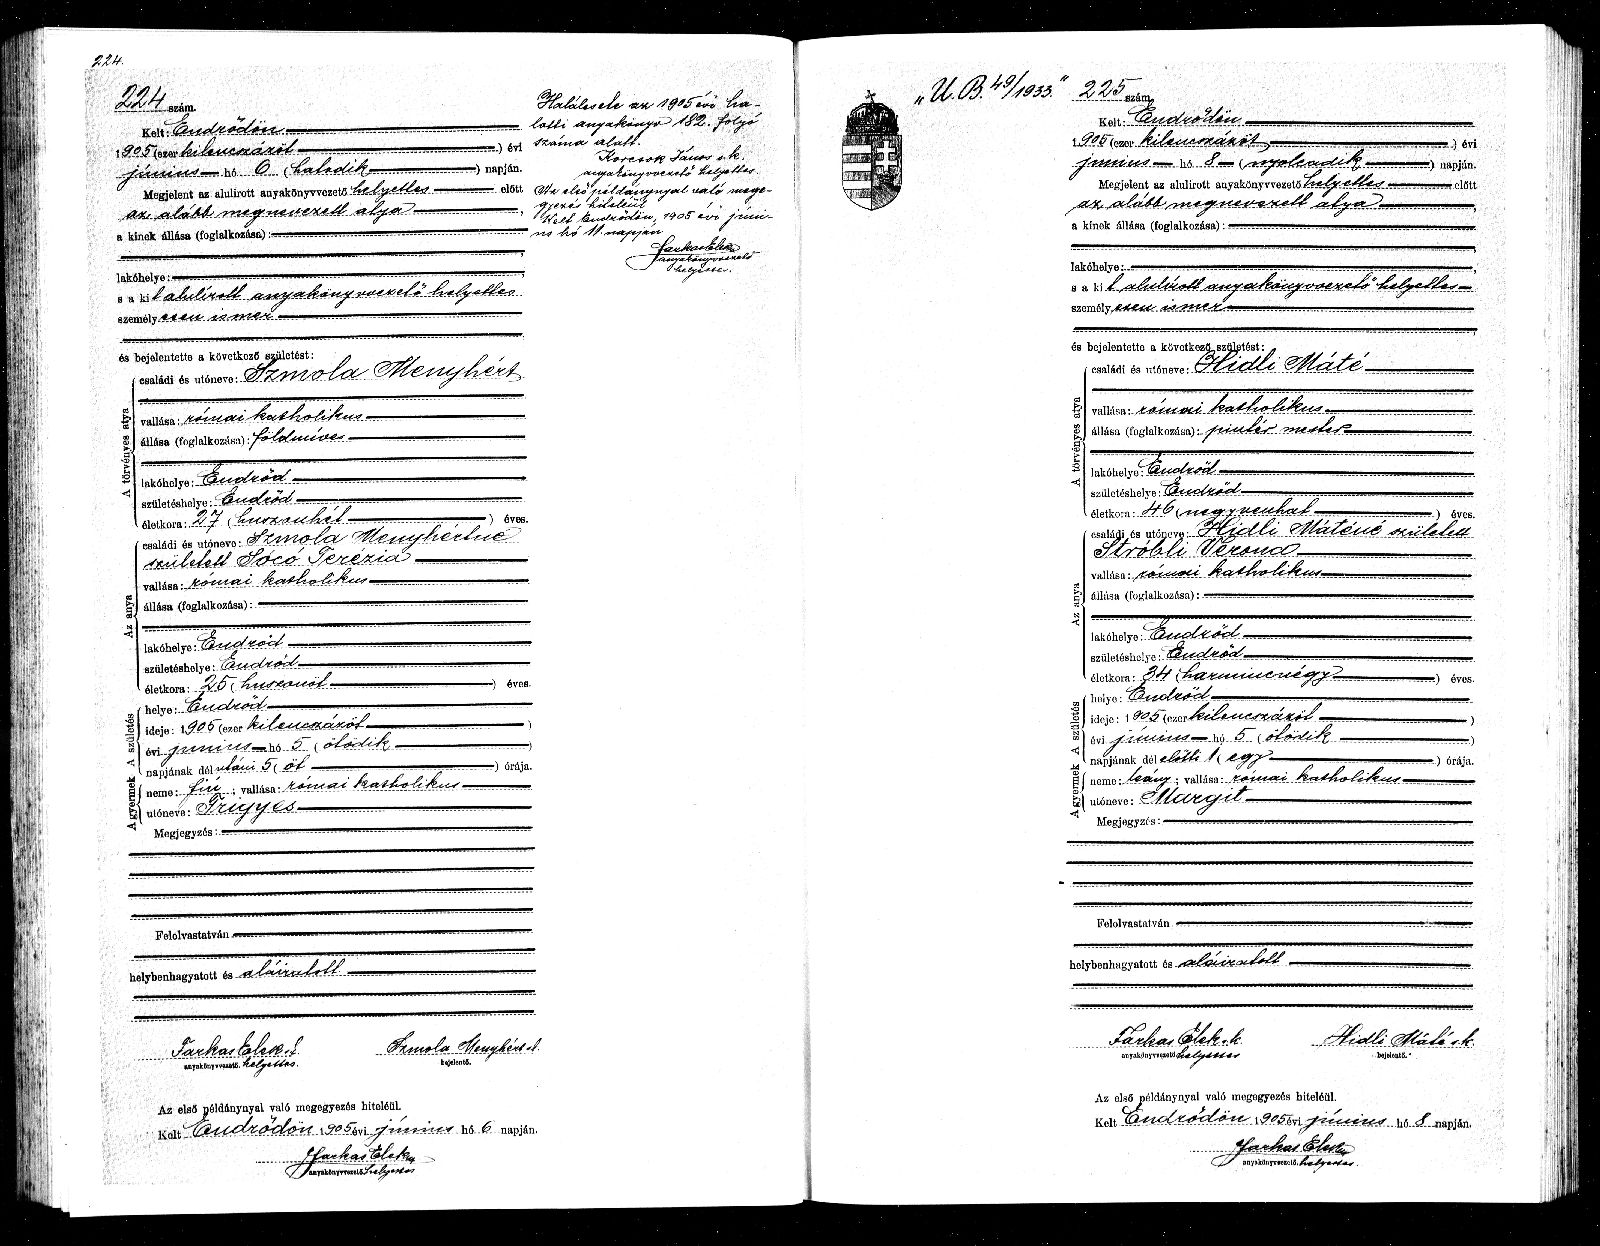 224.
224 szám.
Kelt: Endrődön
1905 (ezer kilenczázöt) évi
június hó 6 (hatodik) napján.
Megjelent az alulirott anyakönyvvezető helyettes előtt
az alább megnevezett atya,
a kinek állása (foglalkozása):
lakóhelye:
s a kit alulírott anyakönyvvezető helyettes
személyesen ismer
és bejelentette a következő születést:
A törvényes atya
családi és utóneve: Szmola Menyhért
vallása: római katholikus
állása (foglalkozása): földmíves
lakóhelye: Endrőd
születéshelye: Endrőd
életkora: 27 (huszonhét) éves.
Az anya
családi és utóneve: Szmola Menyhértné
született Sócó Terézia
vallása: római katholikus
állása (foglalkozása):
lakóhelye: Endrőd
születéshelye: Endrőd
életkora: 25 (huszonöt) éves.
A születés
helye: Endrőd
ideje: 1905 (ezer kilenczázöt)
évi június hó 5 (ötödik)
napjának dél utáni 5 (öt) órája.
A gyermek
neme: fiú; vallása: római katholikus
utóneve: Frigyes
Megjegyzés:
Felolvastatván
helybenhagyatott és aláiratott
Farkas Elek s.k. Szmola Menyhért s.k.
anyakönyvvezető helyettes. bejelentő.
Az első példánynyal való megegyezés hiteléül.
Kelt Endrődön 1905 évi június hó 6 napján.
Farkas Elek
anyakönyvvezető helyettes
Halálesete az 1905 évi ha-
lotti anyakönyv 182. folyó
száma alatt.
Korcsok János s.k.
anyakönyvvezető helyettes.
Az első példánynyal való mege-
gyezés hiteléül
Kelt Endrődön, 1905 évi júni-
us hó 11. napján
Farkas Elek
anyakönyvvezető
helyettes.
„U. B. 49/1933."
225 szám.
Kelt: Endrődön
1905 (ezer kilenczázöt) évi
június hó 8 (nyolcadik) napján.
Megjelent az alulirott anyakönyvvezető helyettes előtt
az alább megnevezett atya,
a kinek állása (foglalkozása):
lakóhelye:
s a kit alulírott anyakönyvvezető helyettes
személyesen ismer
és bejelentette a következő születést:
A törvényes atya
családi és utóneve: Hidli Máté
vallása: római katholikus
állása (foglalkozása): pintér mester
lakóhelye: Endrőd
születéshelye: Endrőd
életkora: 46 (negyvenhat) éves.
Az anya
családi és utóneve: Hidli Máténé született
Stróbli Verona
vallása: római katholikus
állása (foglalkozása):
lakóhelye: Endrőd
születéshelye: Endrőd
életkora: 34 (harmincnégy) éves.
A születés
helye: Endrőd
ideje: 1905 (ezer kilenczázöt)
évi június hó 5 (ötödik)
napjának dél előtti 1 (egy) órája.
A gyermek
neme: leány; vallása: római katholikus
utóneve: Margit
Megjegyzés:
Felolvastatván
helybenhagyatott és aláiratott
Farkas Elek s.k. Hidli Máté s.k.
anyakönyvvezető helyettes bejelentő.
Az első példánynyal való megegyezés hiteléül.
Kelt Endrődön 1905 évi június hó 8 napján.
Farkas Elek
anyakönyvvezető helyettes.